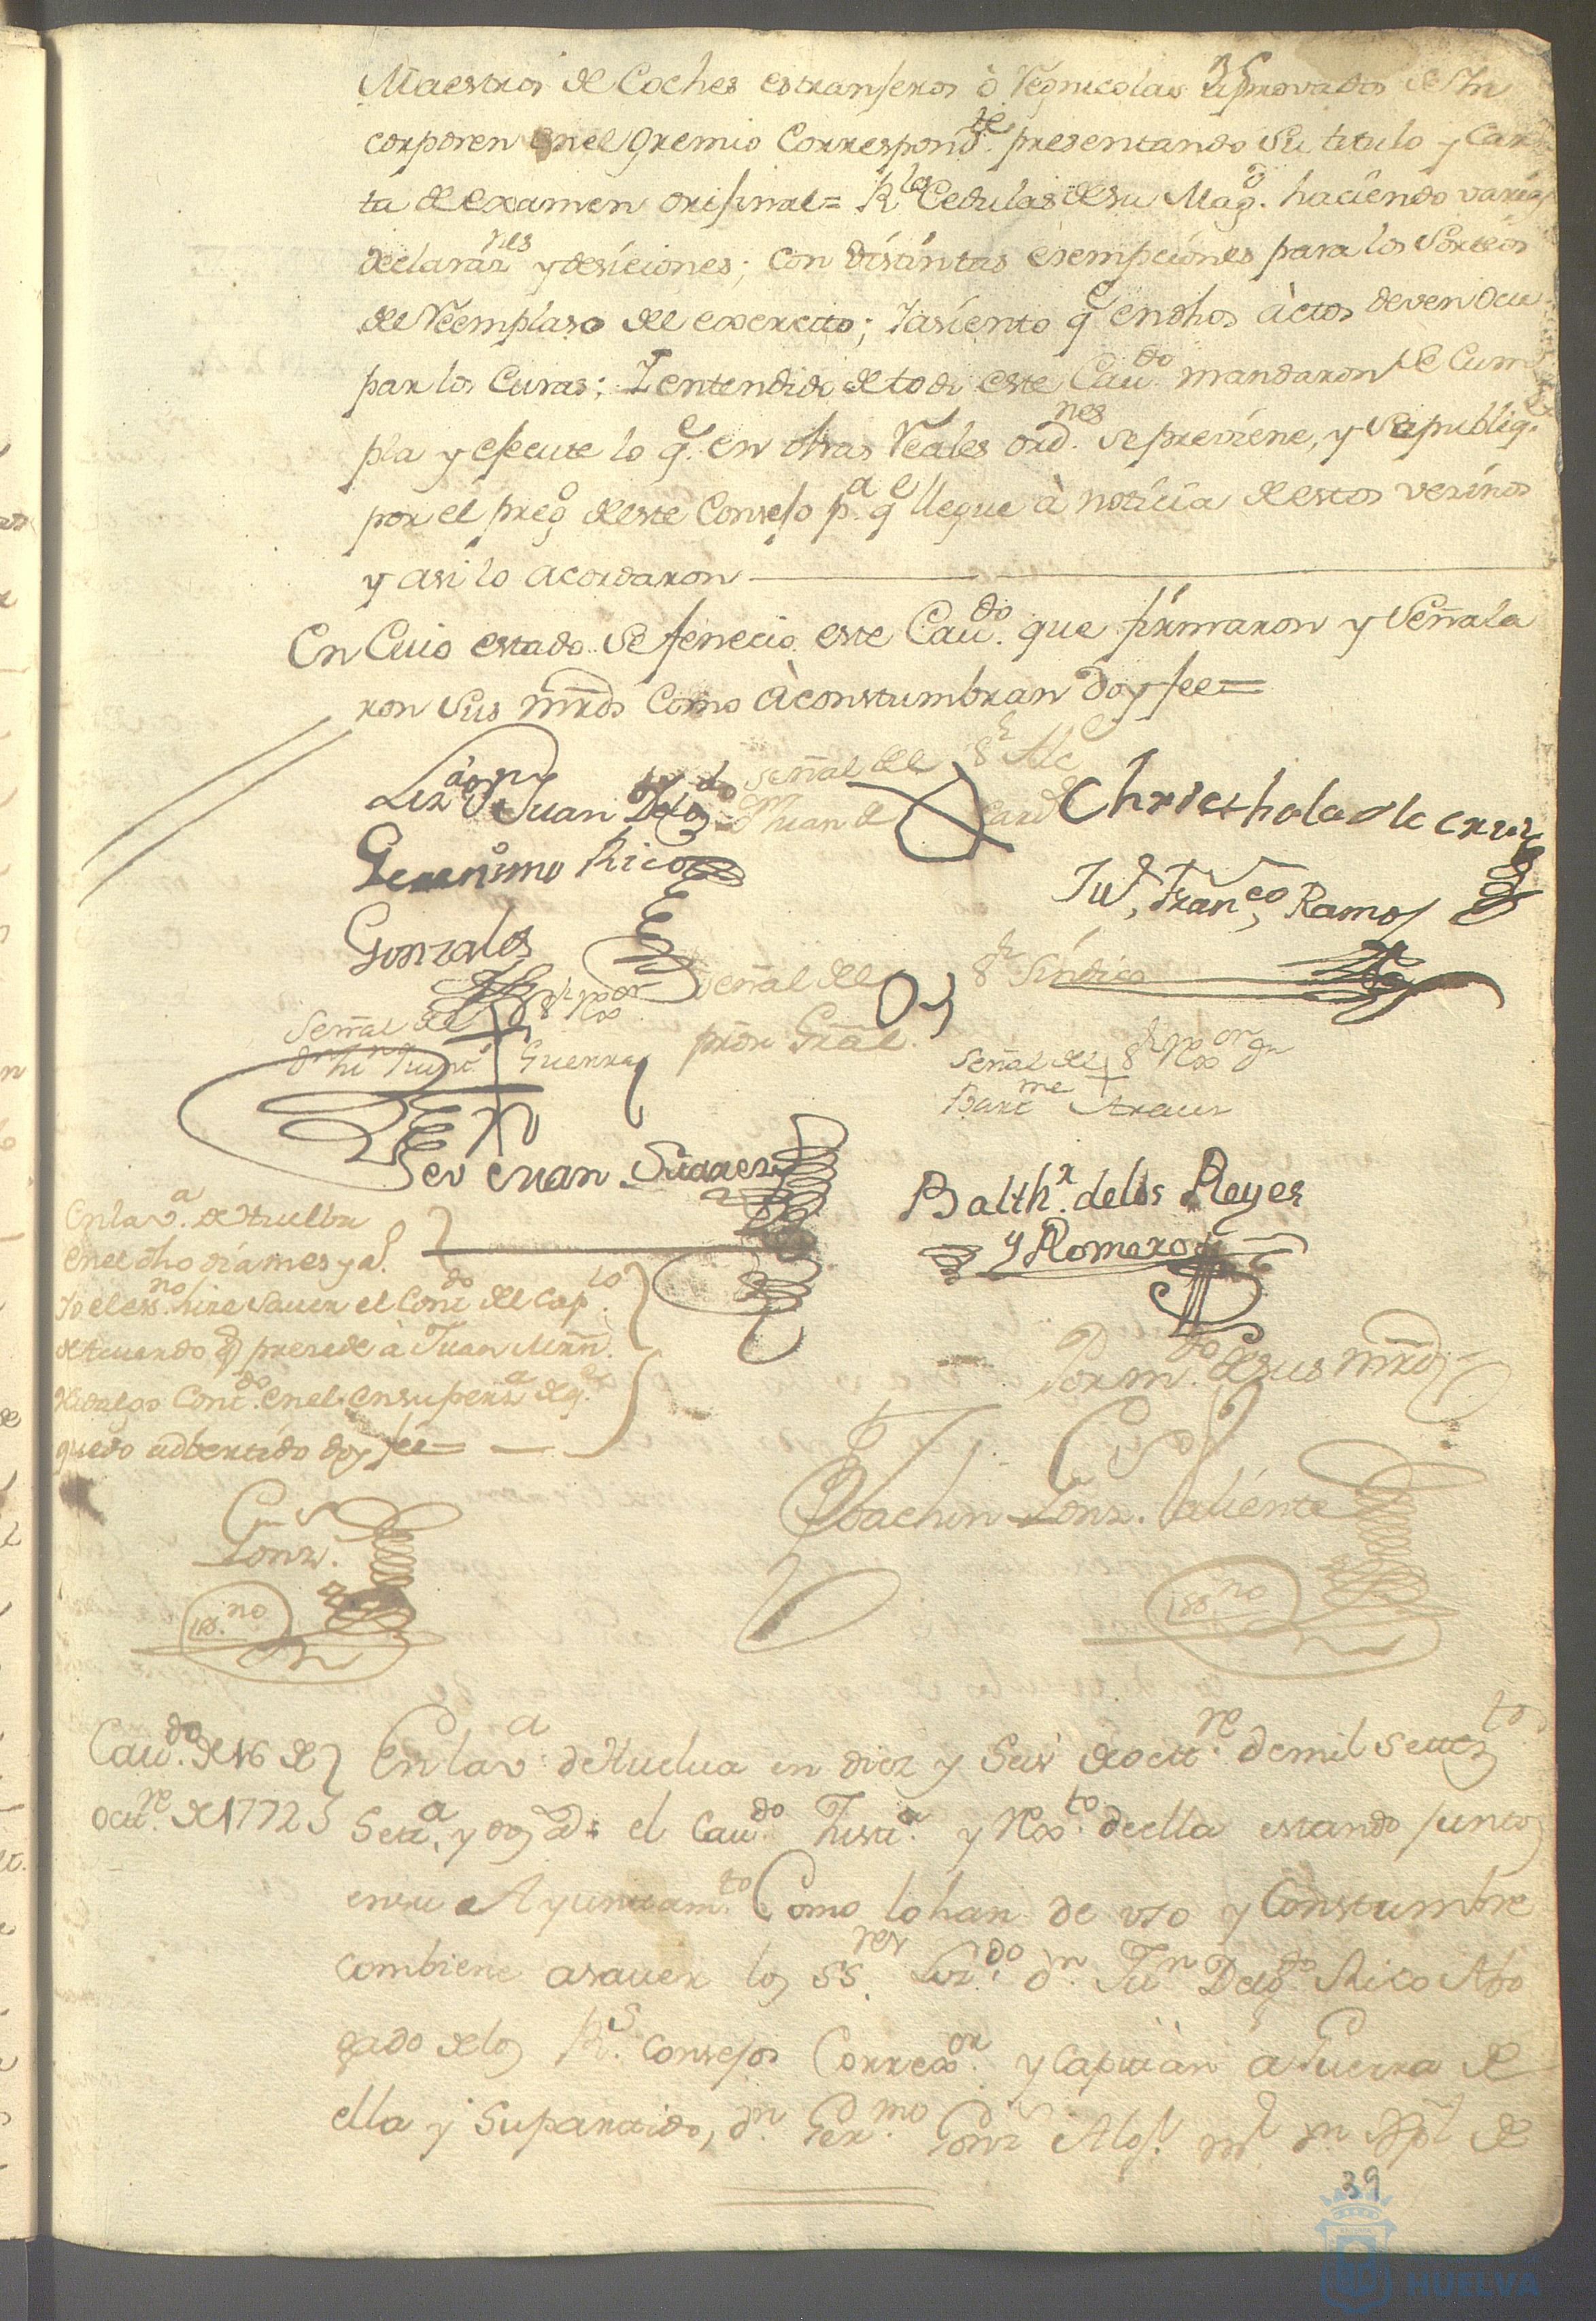 Maestros de Coches estranjeros ò Regnicolas aprovados se In
corporen en el Gremio Correspond.te presentando su titulo y Car
ta de examen orijinal = R.les Cedulas de su Mag.d haciendo varias
declaraz.nes y desiciones; con distintas esempciones para los Sorteos
de Reemplaso del exercito; y asiento q.e en dhos àctos deven ocu
par los Curas; Y entendido de todo este Cau.do mandaron se Cum
pla y ejecute lo q.e en dhas Reales ord.nes se previene, y se publiq.e
por el preg.o de este Consejo p.a q.e llegue à noticia de estos vecinos
y asi lo acordaron
En Cuio estado se fenecio este Cau.do que firmaron y Señala
ron sus mrds Como àconstumbran doy fee =
Liz.do D.n Juan Delg.do
Señal del S.r Alc
Juan de Card
Christhobal de la Cruz
Geronimo Rico
Ju.n Fran.co Ramos
Gonzales
Señal del S.r Sindico
Señal del S.r Rex.or
Guerra
pror Gral.
Señal del S.r Rex.or
Bar.me Araus
Sev Cuan Suarez
Balth.r de los Reyes
y Romero
En la v.a de Huelba
en el dho dia mes y a.o
Yo el ess.no hize saver el Cont.do del Cap.lo
de Acuerdo q.e precede à Juan Mrn.
Hidalgo Cont.do en el en su pers.a de q.e
quedo adbertido doy fee =
Por m.do de sus mrds
Joachin Gonz. Valiente
Gonz.
ess.no
ess.no
Cau.do de 16 de
Oct.re de 1772
En la v.a de Huelua en diez y Seis de oct.re de mil setez.tos
Set.a y dos a.s el Cau.do Just.a y Rex.to de ella estando juntos
en su Ayuntam.to Como lo han de vso y Constumbre
combiene asauer los SS.res Liz.do d.n Ju.n Delg.do Rico Abo
gado de los R.s Consejos Correx.or y Capitàn à Guerra de
ella y su partido, d.n Ger.mo Gonz Alg.l m.r d.n Xpl de
39
HUELVA